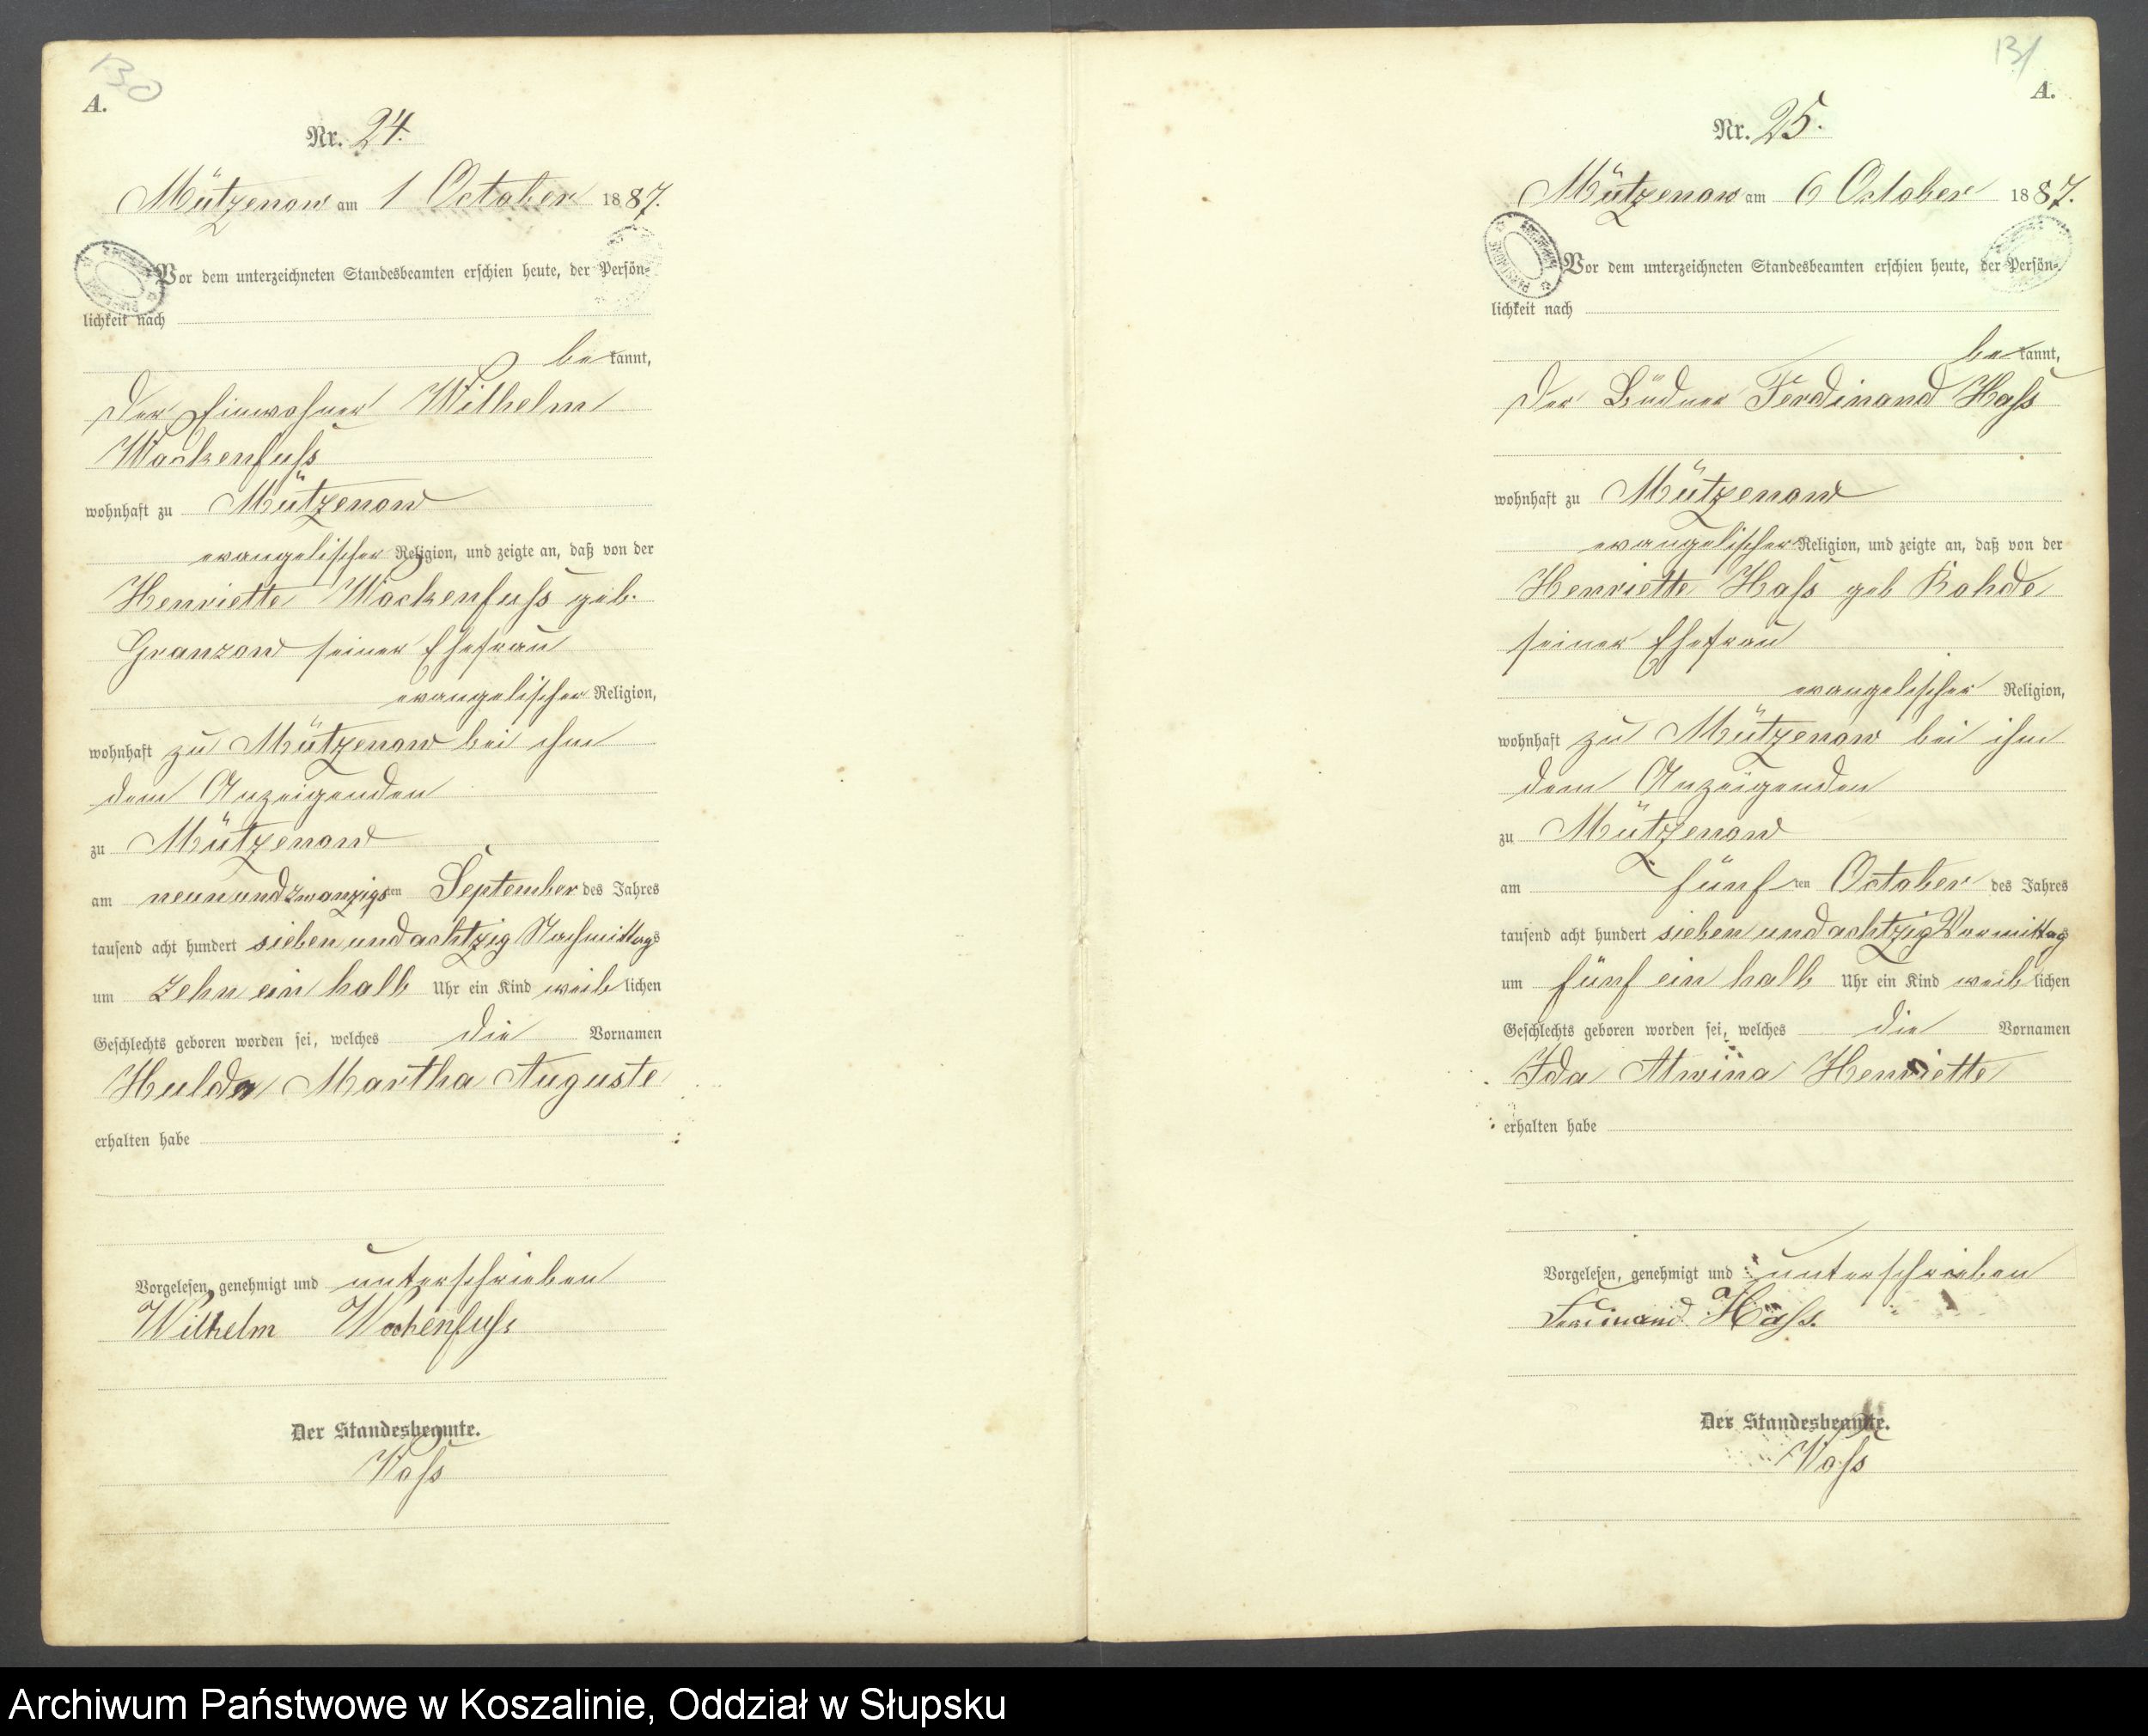 130
A.
Nr. 24.
Mützenow am 1 October 1887.
Vor dem unterzeichneten Standesbeamten erschien heute, der Persön-
lichkeit nach
bekannt,
der Einwohner Wilhelm
Wockenfuß
wohnhaft zu Mützenow
evangelischer Religion, und zeigte an, daß von der
Henriette Wockenfuß geb.
Granzow seiner Ehefrau
evangelischer Religion,
wohnhaft zu Mützenow bei ihm
dem Anzeigenden
zu Mützenow
am neunundzwanzigsten September des Jahres
tausend acht hundert sieben und achtzig Nachmittags
um zehn ein halb Uhr ein Kind weiblichen
Geschlechts geboren worden sei, welches die Vornamen
Hulda Martha Auguste
erhalten habe
Vorgelesen, genehmigt und unterschrieben
Wilhelm Wockenfuß
Der Standesbeamte.
131
A.
Nr. 25.
Mützenow am 6 October 1887.
Vor dem unterzeichneten Standesbeamten erschien heute, der Persön-
lichkeit nach
bekannt,
der Büdner Ferdinand Haß
wohnhaft zu Mützenow
evangelischer Religion, und zeigte an, daß von der
Henriette Haß geb Rohde
seiner Ehefrau
evangelischer Religion,
wohnhaft zu Mützenow bei ihm
dem Anzeigenden
zu Mützenow
am fünften October des Jahres
tausend acht hundert sieben und achtzig Vormittag
um fünf ein halb Uhr ein Kind weiblichen
Geschlechts geboren worden sei, welches die Vornamen
Ida Alwina Henriette
erhalten habe
Vorgelesen, genehmigt und unterschrieben
Ferdinand Haß.
Der Standesbeamte.
Archiwum Państwowe w Koszalinie, Oddział w Słupsku